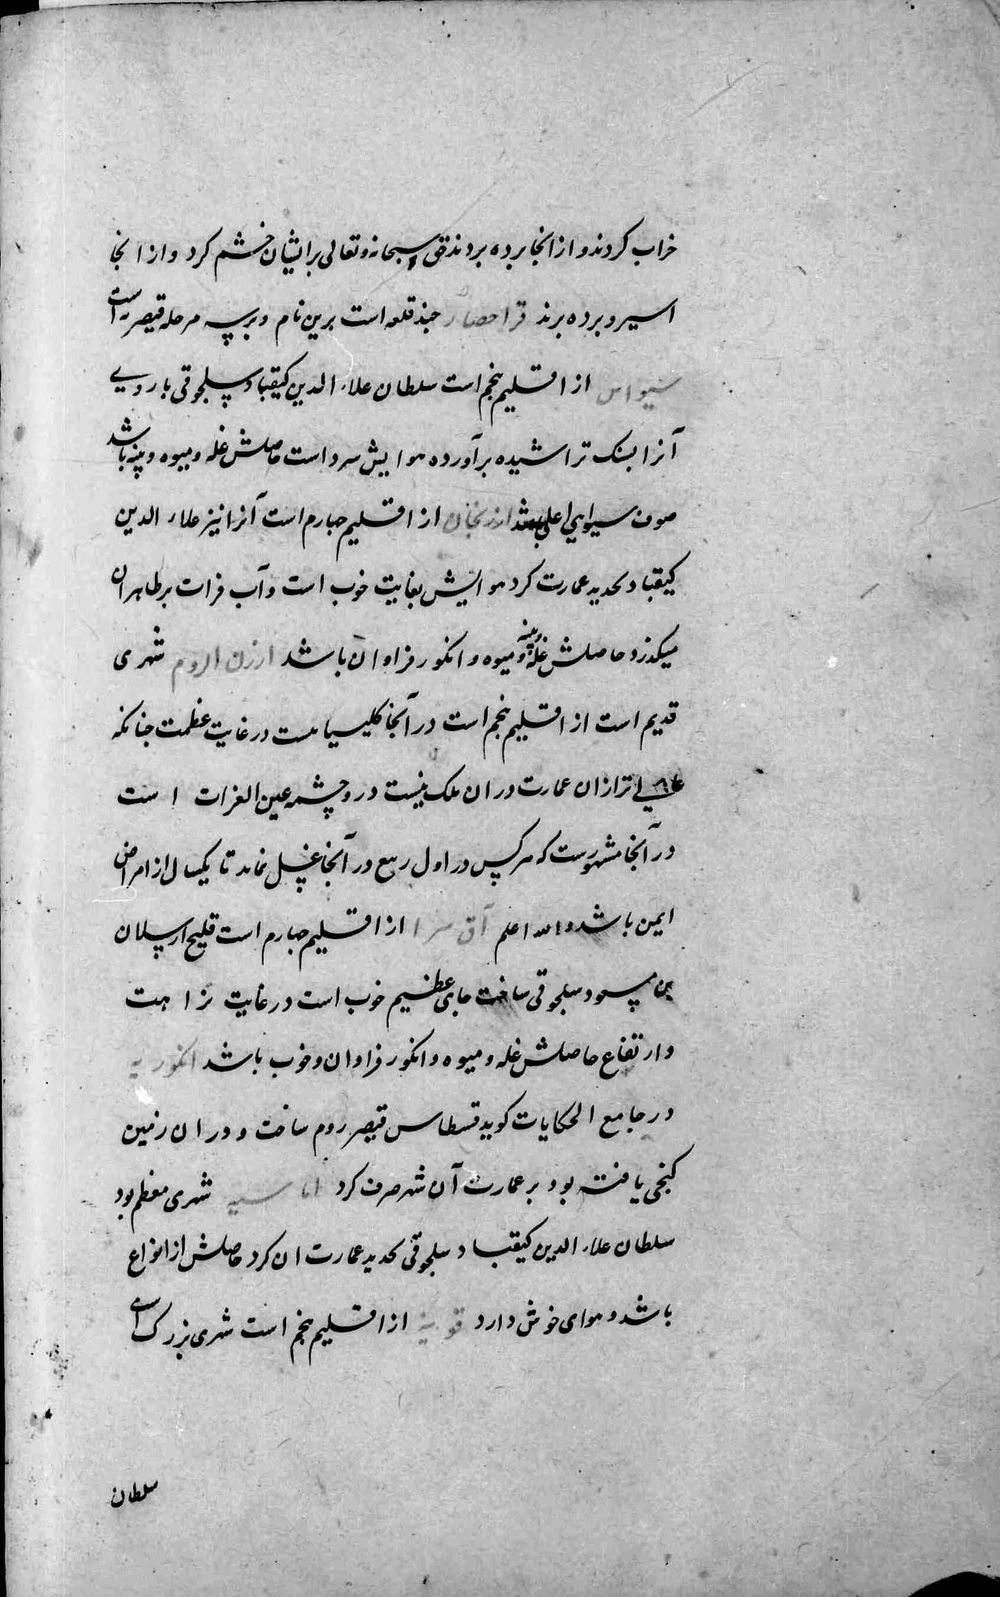 خراب کردند و از انجا برده بردند حق سبحانه و تعالی بر ایشان خشم کرد و از انجا
اسیر و برده برند قراحصار چند قلعه است برین نام و بر سه مرحله قیصریه است
سیواس از اقلیم پنجم است سلطان علاء الدین کیقباد سلجوقی باروی
آنرا بسنک تراشیده برآورده هوایش سرد است حاصلش غله و میوه و پنبه باشد
صوف سیواسی اعلی باشد ارزنجان از اقلیم چهارم است آنرا نیز علاء الدین
کیقباد تجدید عمارت کرد هوایش بغایت خوب است و آب فرات بر ظاهر ان
میکذرد حاصلش غله و پنبه و میوه و انکور فراوان باشد ارزن الروم شهری
قدیم است از اقلیم پنجم است در آنجا کلیسیا هست در غایت عظمت چنانکه
عالی تر ازان عمارت در ان ملک نیست در و چشمه عین الفرات است
در آنجا مشهورست که هرکس در اول ربیع در آنجا غسل نماید تا یکسال از امراض
ایمن باشد والله اعلم آق سرا از اقلیم چهارم است قلیج ارسلان
بن مسعود سلجوقی ساخت جای عظیم خوب است در غایت نزاهت
و ارتفاع حاصلش غله و میوه و انکور فراوان و خوب باشد انکوریه
در جامع الحکایات کوید قسطاس قیصر روم ساخت و در ان زمین
کنجی یافته بود بر عمارت آن شهر صرف کرد اماسیه شهری معظم بود
سلطان علاء الدین کیقباد سلجوقی تجدید عمارت ان کرد حاصلش از انواع
باشد و هوای خوش دارد قونیه از اقلیم پنجم است شهری بزرک است
سلطان